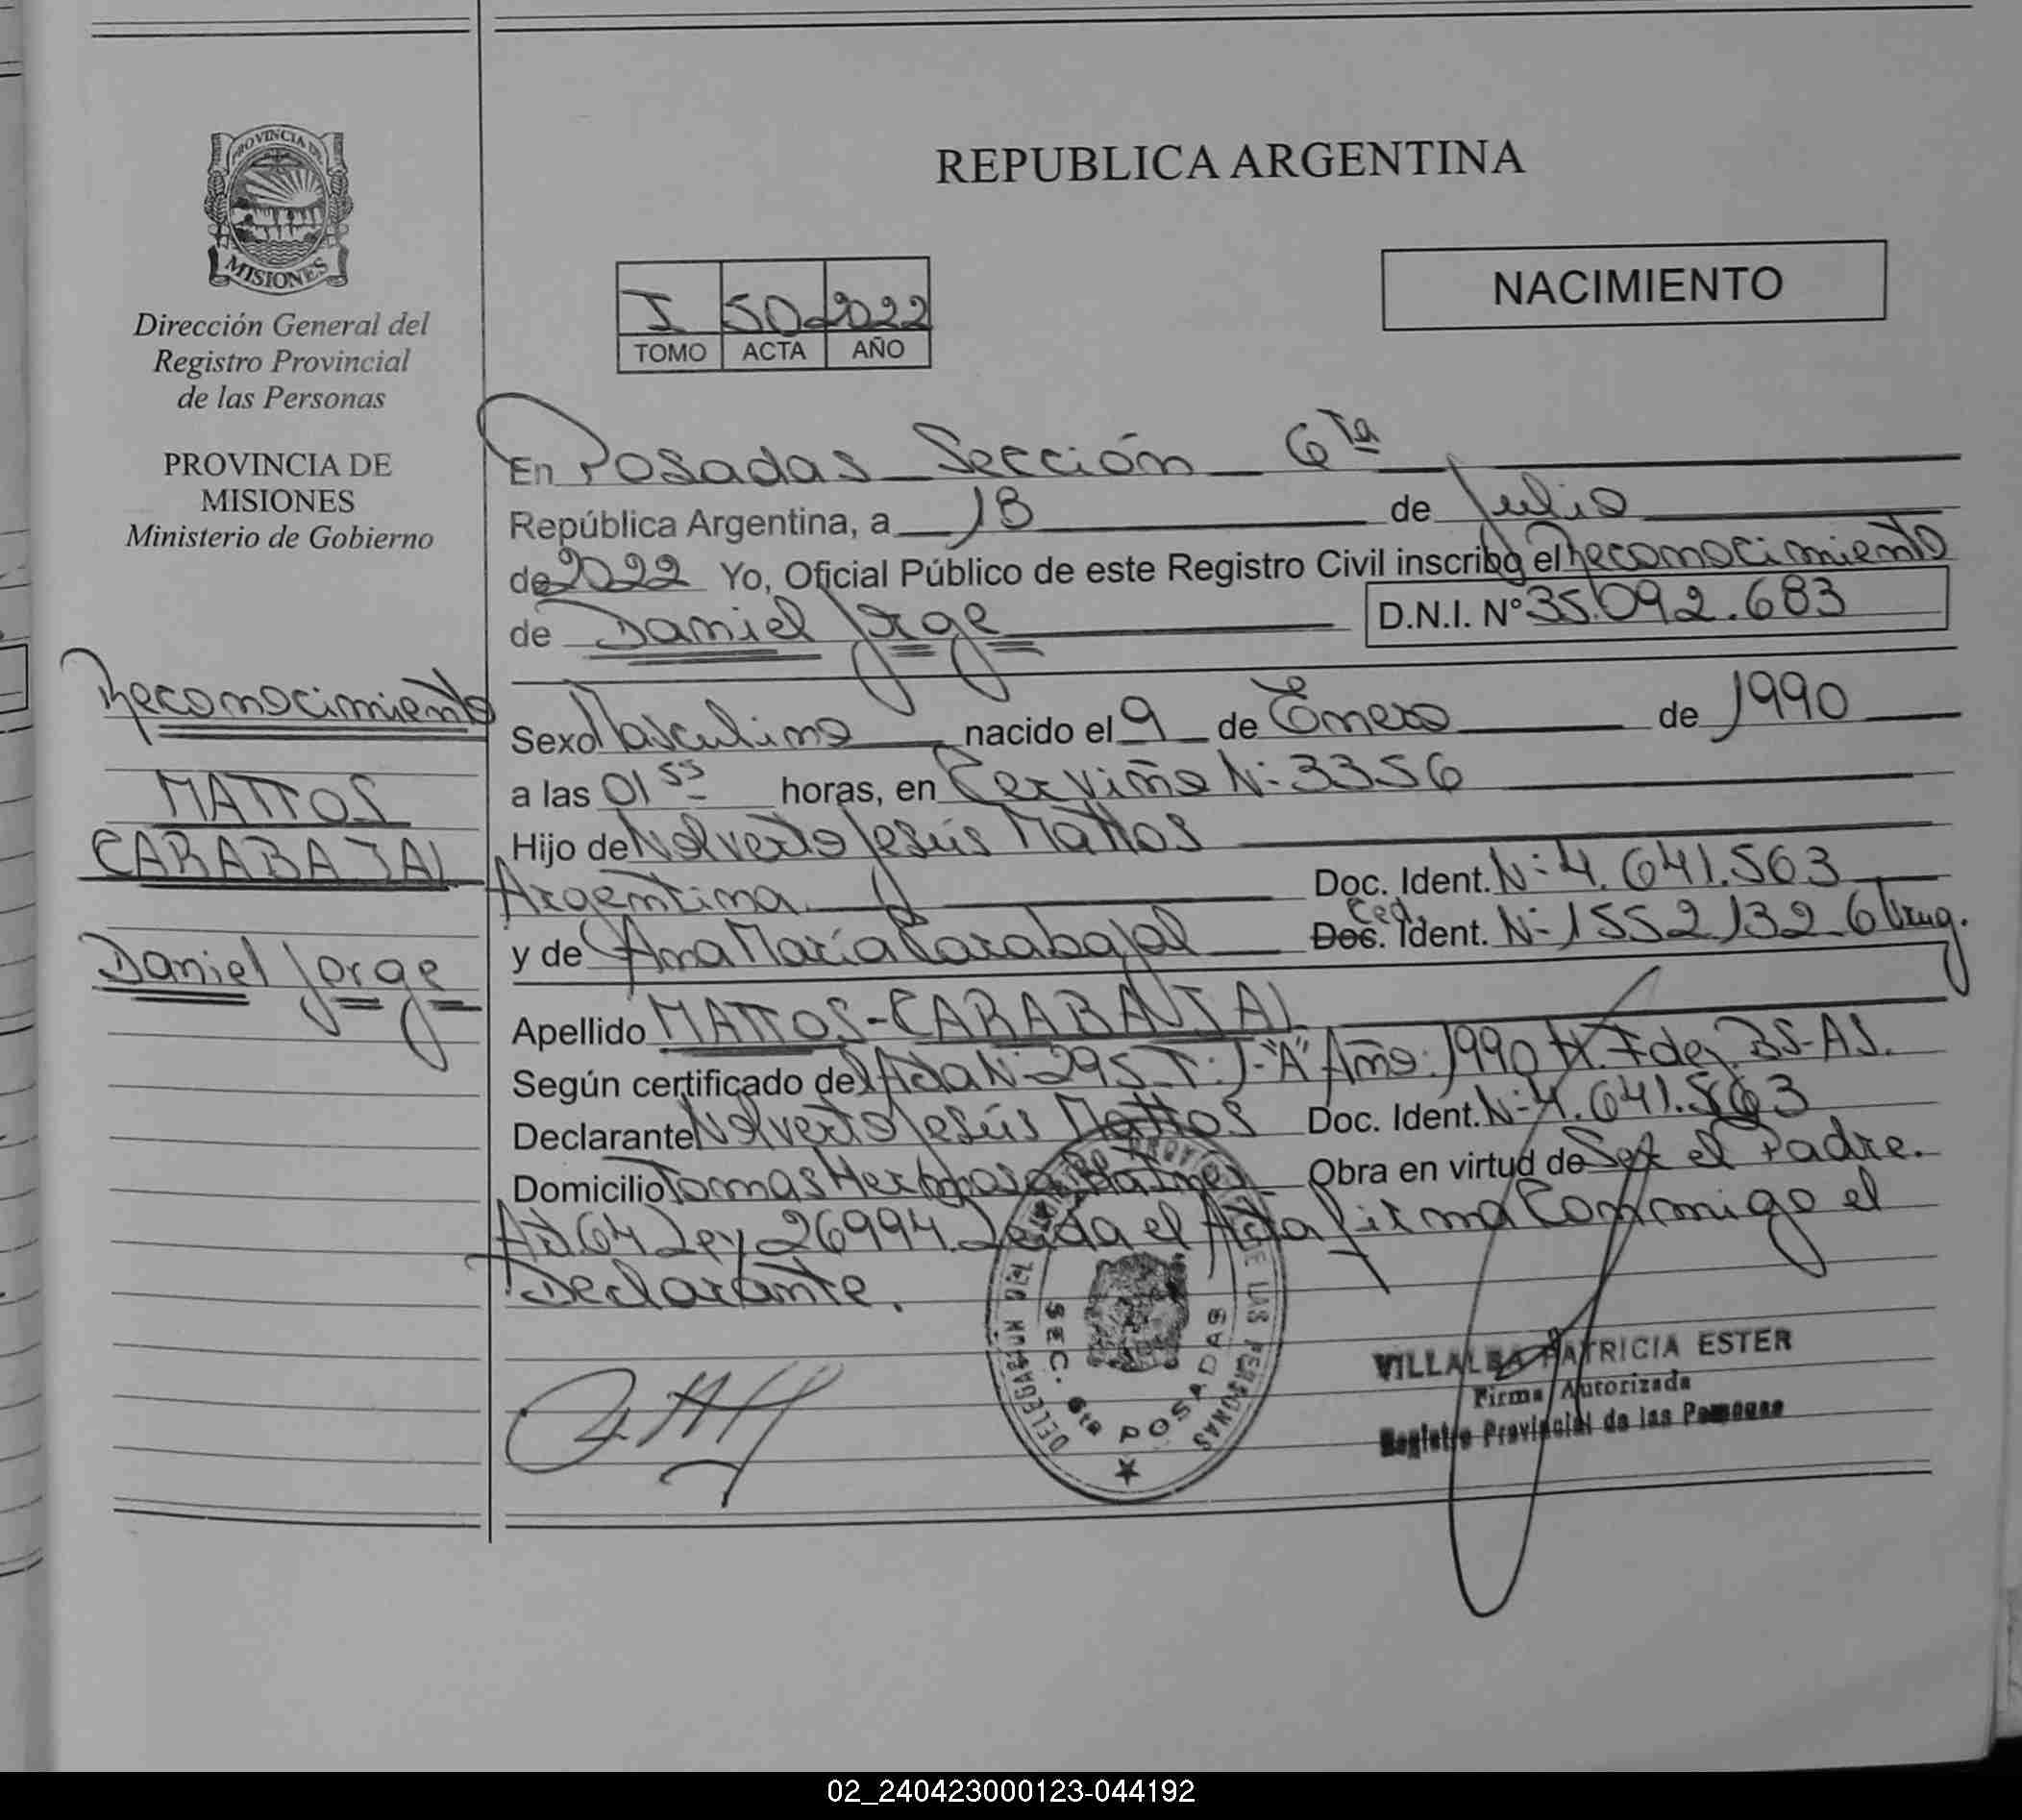 PROVINCIA DE
MISIONES
Dirección General del
Registro Provincial
de las Personas
PROVINCIA DE
MISIONES
Ministerio de Gobierno
Reconocimiento
MATTOS
CARABAJAL
Daniel Jorge
REPUBLICA ARGENTINA
I 50 2022
TOMO ACTA AÑO
NACIMIENTO
En Posadas Sección 6ta
República Argentina, a 18 de Julio
de 2022 Yo, Oficial Público de este Registro Civil inscribo el Reconocimiento
de Daniel Jorge D.N.I. N° 35.092.683
Sexo Masculino nacido el 9 de Enero de 1990
a las 01 55 horas, en Cerviño N: 3356
Hijo de Nolverto Jesús Mattos
Argentina Doc. Ident. N: 4.641.563
Ced.
y de Ana María Carabajal Doc. Ident. N: 1552132-6 Urug.
Apellido MATTOS-CARABAJAL
Según certificado del Acta N: 295 T: 1-"A" Año: 1990 BS-AS.
Declarante Nolverto Jesús Mattos Doc. Ident. N: 4.641.563
Domicilio Tomas Obra en virtud de Ser el Padre.
Art. 64 Ley 26994. Leida el Acta firma Conmigo el
Declarante.
DELEGACION DEL REGISTRO PROVINCIAL DE LAS PERSONAS
SEC. 6ta POSADAS
VILLALBA PATRICIA ESTER
Firma Autorizada
Registro Provincial de las Personas
02_240423000123-044192